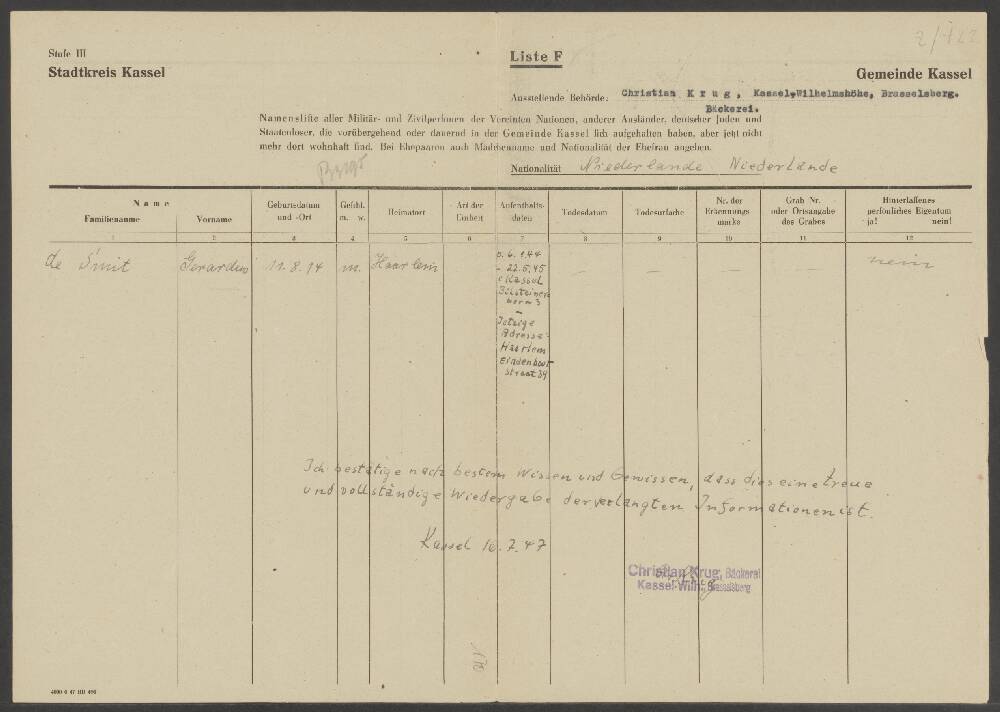 2/122
Stufe III
Liste F
Stadtkreis Kassel
Gemeinde Kassel
Ausstellende Behörde: Christian Krug, Kassel-Wilhelmshöhe, Brasselsberg.
Bäckerei.
Namensliste aller Militär- und Zivilpersonen der Vereinten Nationen, anderer Ausländer, deutscher Juden und
Staatenloser, die vorübergehend oder dauernd in der Gemeinde Kassel sich aufgehalten haben, aber jetzt nicht
mehr dort wohnhaft sind. Bei Ehepaaren auch Mädchenname und Nationalität der Ehefrau angeben.
Nationalität Niederlande Niederlande
Name
Familienname Vorname
Geburtsdatum und -Ort
Geschl. m. w.
Heimatort
Art der Einheit
Aufenthalts- daten
Todesdatum
Todesursache
Nr. der Erkennungs marke
Grab Nr. oder Ortsangabe des Grabes
Hinterlassenes persönliches Eigentum ja! nein!
1 2 3 4 5 6 7 8 9 10 11 12
de Smit Gerardus 11.8.14 m. Haarlem — — — — — nein
6. 1944
- 22.5.45
Kassel
Bilsteiner
born 3
-
Jetzige
Adresse
Haarlem
straat 34
Ich bestätige nach bestem Wissen und Gewissen, dass dies eine treue
und vollständige Wiedergabe der verlangten Informationen ist.
Kassel 16.7.47
Christian Krug, Bäckerei
Kassel-Wilh., Brasselsberg
4000 6 47 HD 496